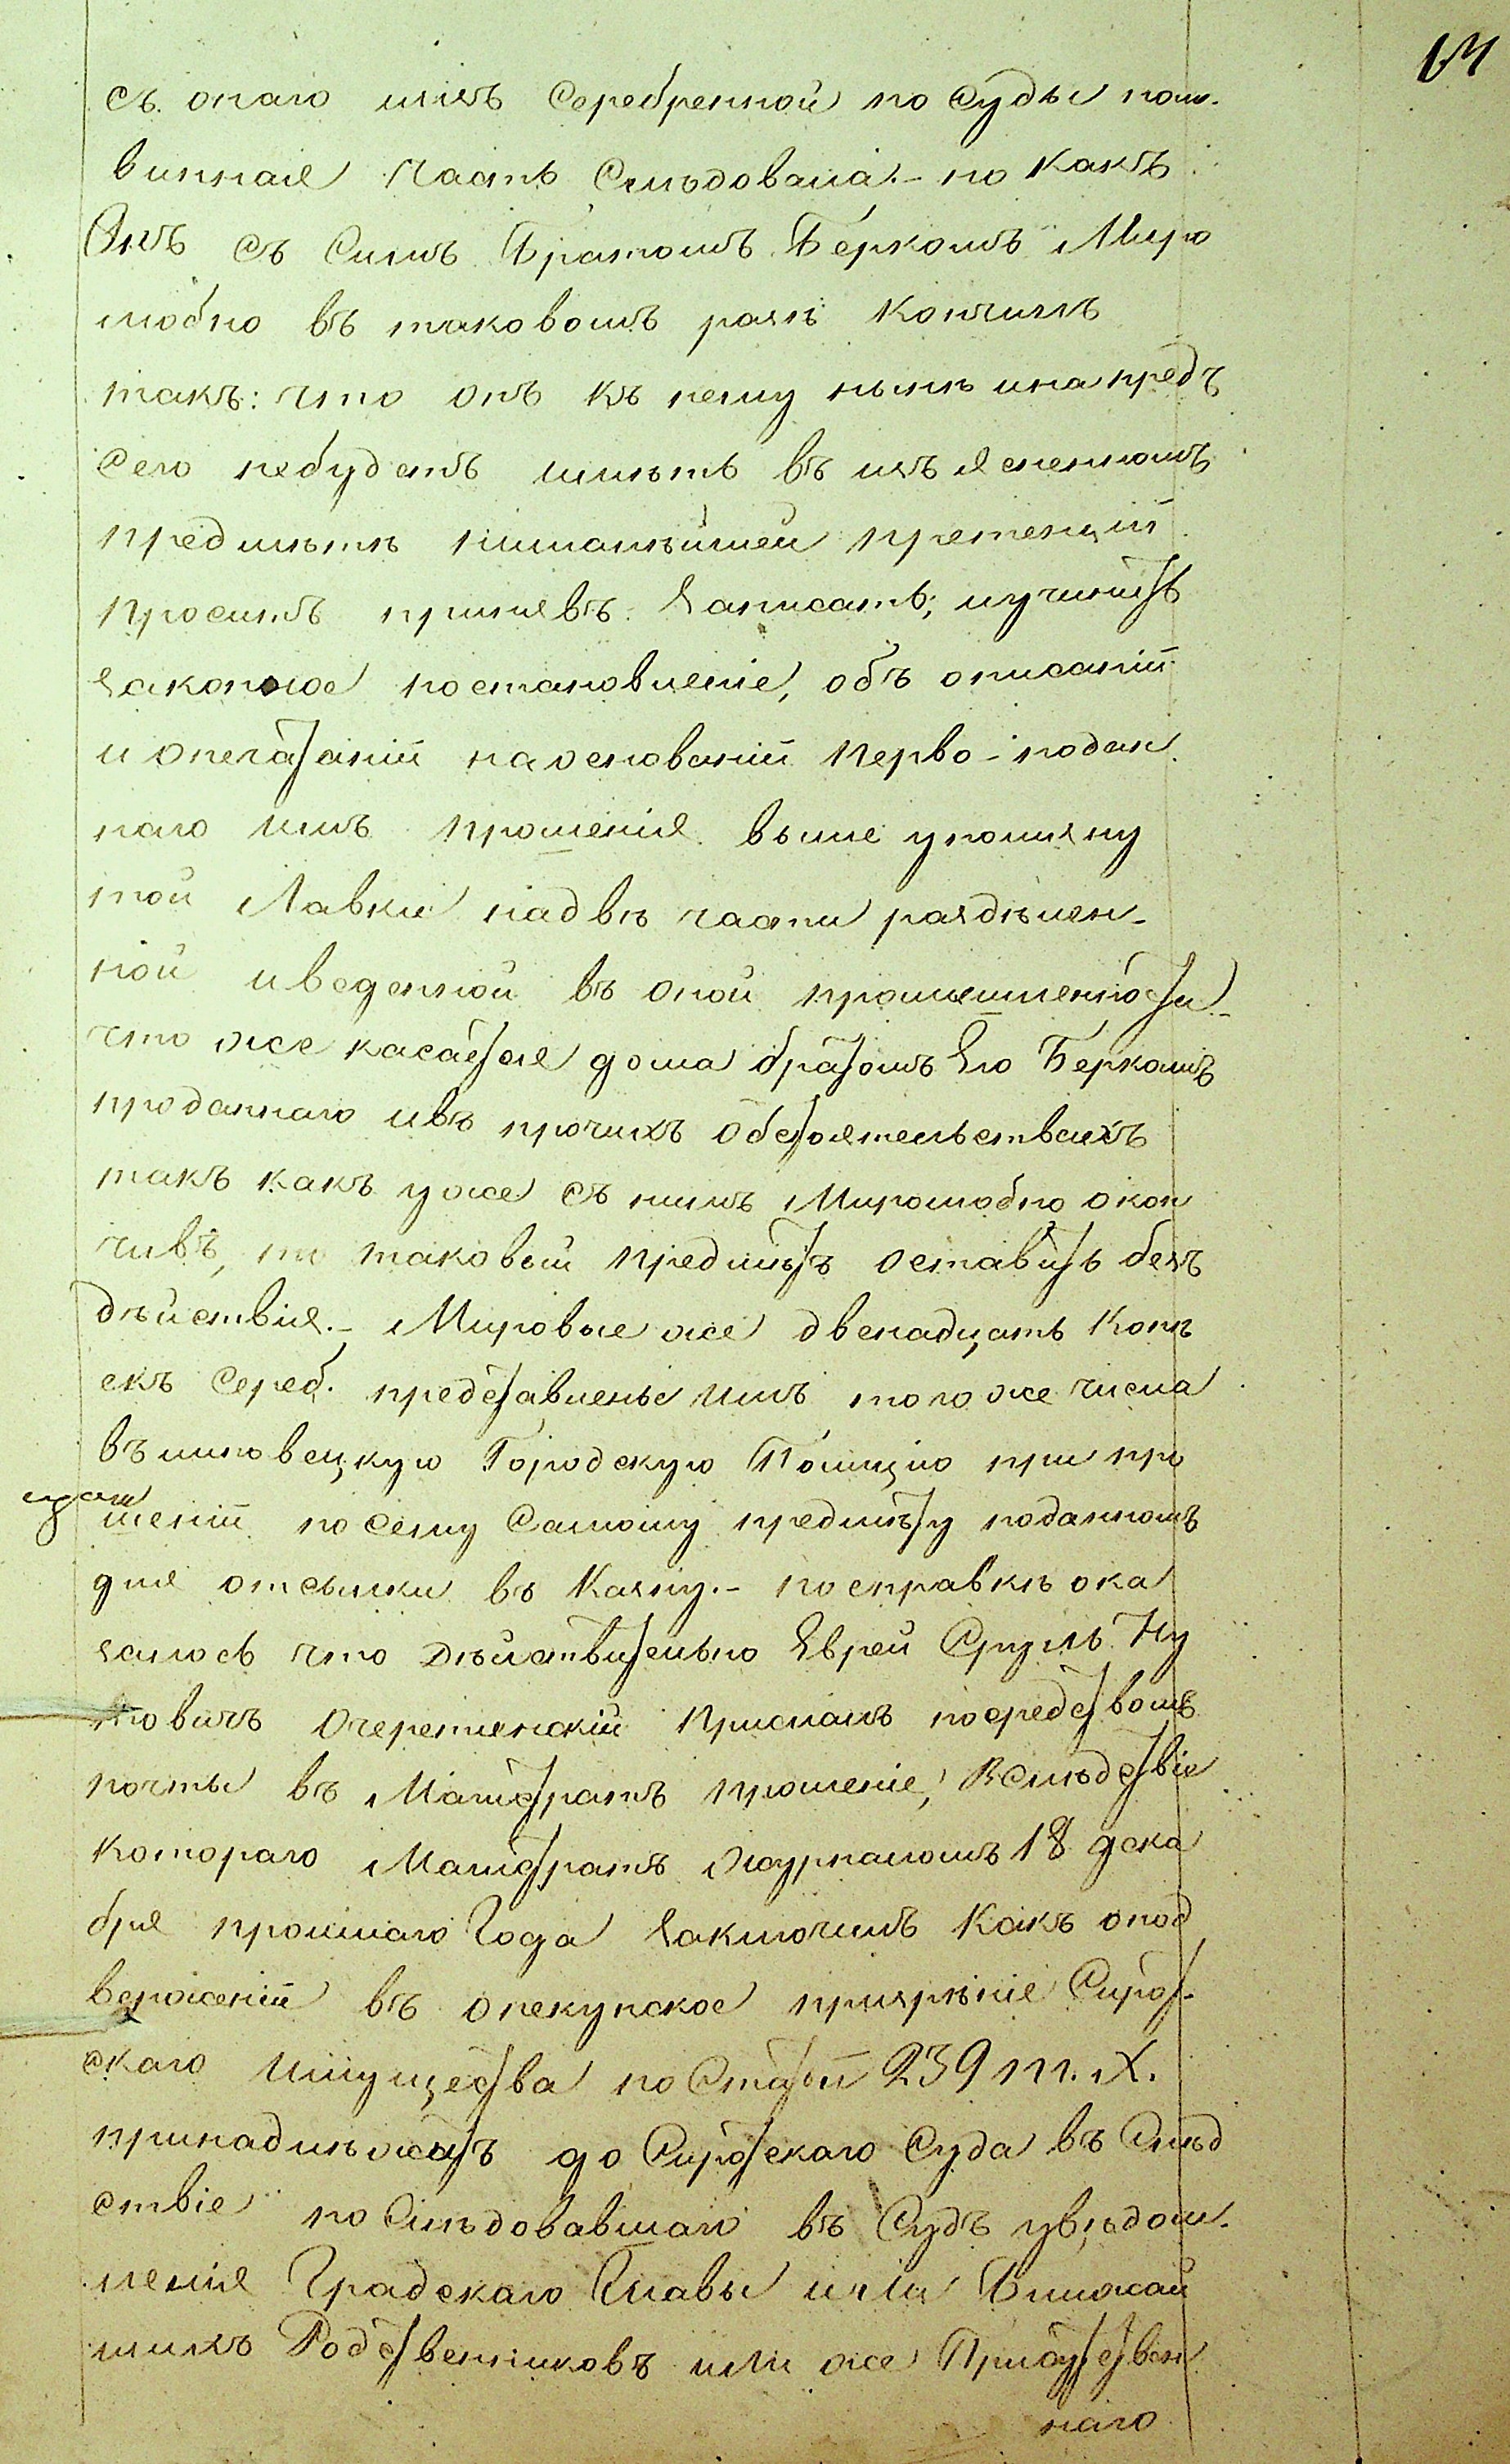 съ онаго изъ Серебренной посуды поло-
винная часть Слѣдовала.- но какъ
Онъ съ Симъ Братомъ Беркомъ Миро
любно въ таковомъ разѣ Кончилъ
такъ: что онъ къ нему нынѣ инапредъ
Сего небудетъ имѣть въ изъясненномъ
предмѣтѣ нималѣйшей претенціи
просилъ принявъ Записать; иучинить
законное постановленіе, объ описаніи
и опечатаніи наоснованіи перво-подан
наго имъ прошенія выше упомяну
той Лавки надвѣ части раздѣлен-
ной иведенной въ оной промышленности.-
что же касается дома братомъ Его Беркомъ
проданнаго ивъ прочихъ обстоятельствахъ
такъ какъ уже съ нимъ Миролюбно окон
чивъ, то таковый предмѣтъ оставить безъ
дѣйствія.- Мировые же двенадцать Копѣ
екъ Сереб. представленые имъ того же числа
въ Городскую Полицію при про
шеніи посему Самому предмѣту поданномъ
для отсылки въ Казну.- посправкѣ ока
залось что дѣйствительно Еврей Сруль Ну
товичъ Очеретянскій прислалъ посредствомъ
почты въ Магистратъ прошеніе, Вслѣдствіе
котораго Магистратъ Журналомъ 18 дека
бря прошлаго Года Заключилъ Какъ опод
верженіи въ опекунское призрѣніе Сирот-
скаго имущества поСтатьи 239 т. X.
принадлѣжатъ до Сиротскаго Суда въ Слѣд
ствіе поСлѣдовавшаго въ Судъ увѣдом-
ленія Градскаго Главы или Ближай
шихъ Родственниковъ или же Приходственнаго